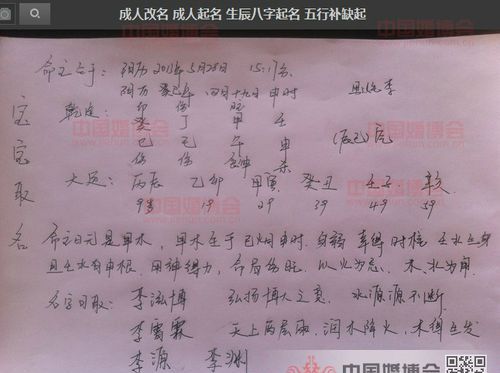 成人改名 成人起名 生辰八字起名 五行补缺起
命主生于：阳历2013年5月28日 15:17分
阴历 癸巳年 四月十九日 申时
姓李
宝宝取名
乾造：印 伤 日 比
癸 丁 甲 壬
巳 巳 午 申
(辰巳)空
大运：丙辰 乙卯 甲寅 癸丑 壬子 辛亥
9岁 19 29 39 49 59
命主日元是甲木，甲木生于巳火申时，身弱
且壬水有申根，用神得力，以火为忌，木、水为用
名字可取：李泓博 弘扬博大之意，水源源不断
李雨霖 润水降火，木得生发
李源 李渊
中国婚博会
www.jiehun.com.cn